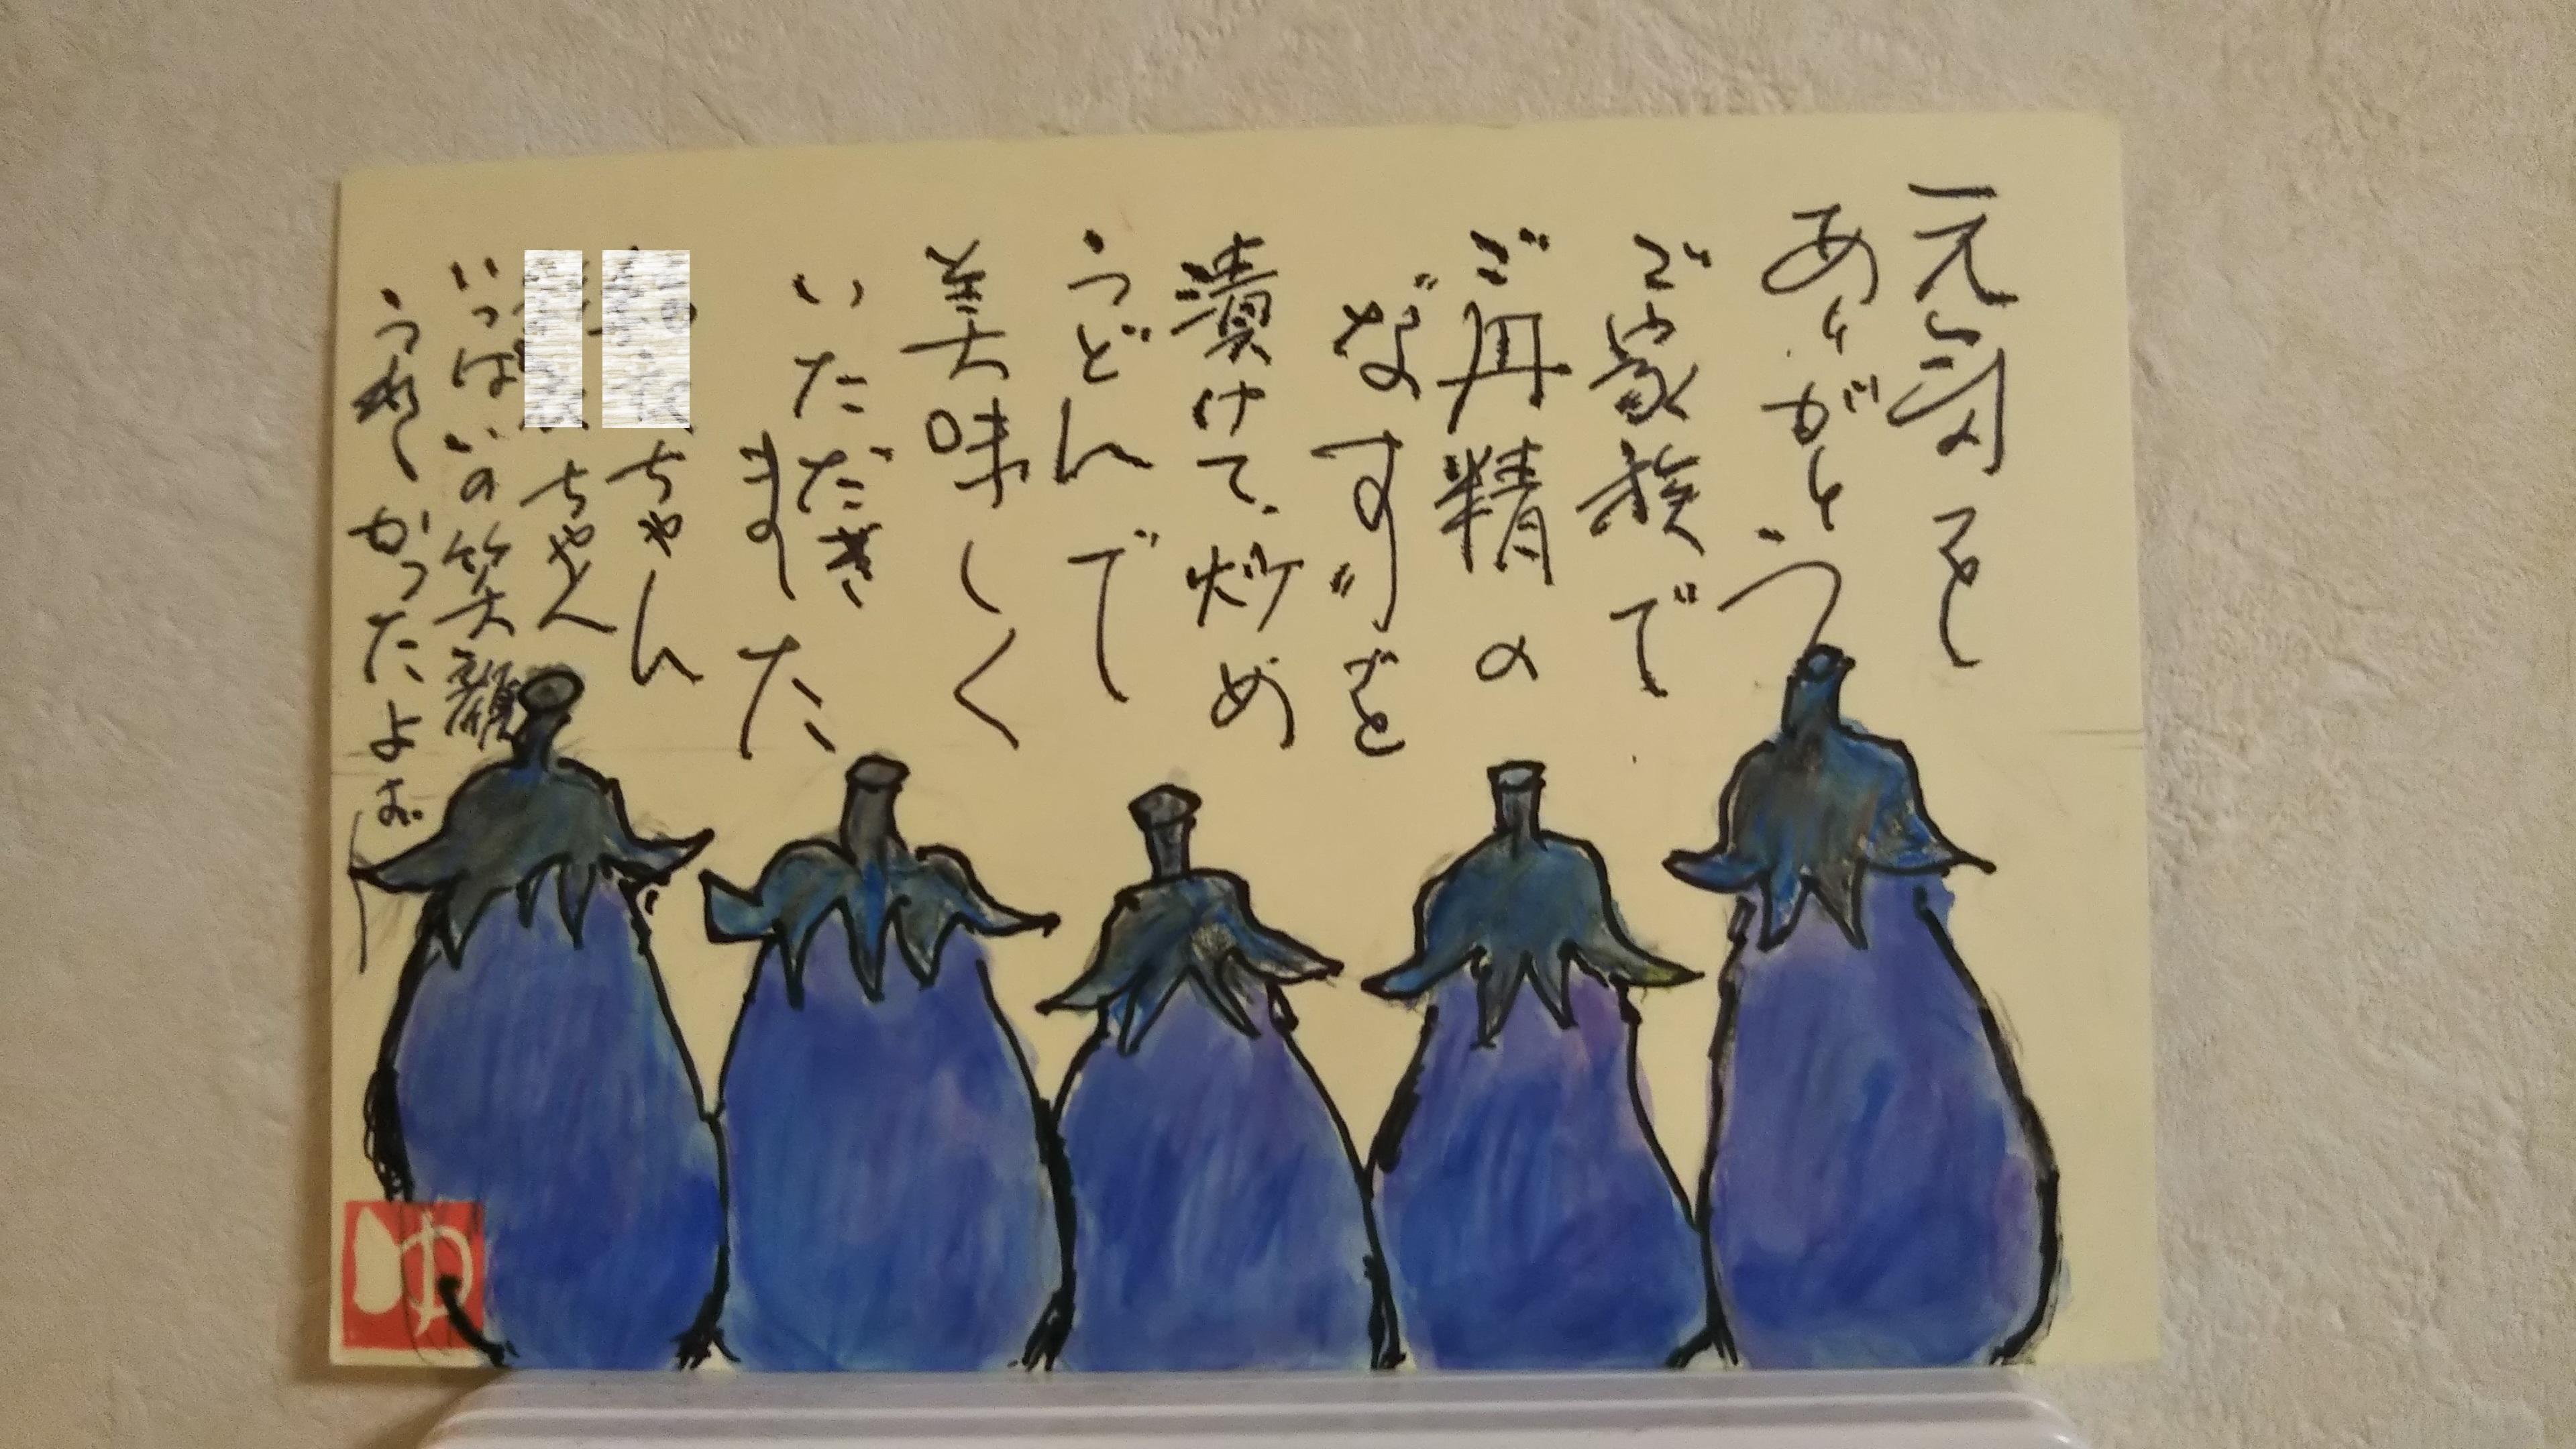 元気を
ありがとう
ご家族で
ご丹精の
"なす"を
漬けて、炒め
うどんで
美味しく
いただき
ました
ちゃん
ちゃん
いっぱいの笑顔
うれしかったよお
ゆ